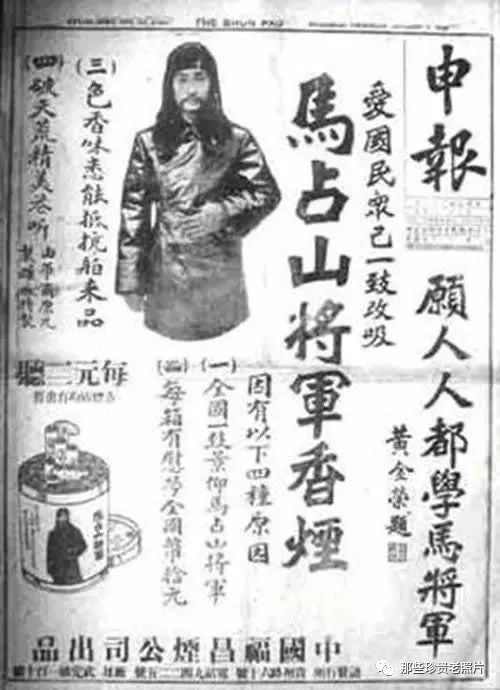 THE SHUN PAO
申報
願人人都學馬將軍
黃金榮題
愛國民眾已一致改吸
馬占山將軍香煙
因有以下四種原因
(一)全國一致景仰馬占山將軍
(二)每箱有慰勞金國幣拾元
(三)色香味悉能抵抗舶來品
(四)破天荒精美
每元三聽
各煙店均有出售
中國福昌煙公司出品
那些珍贵老照片